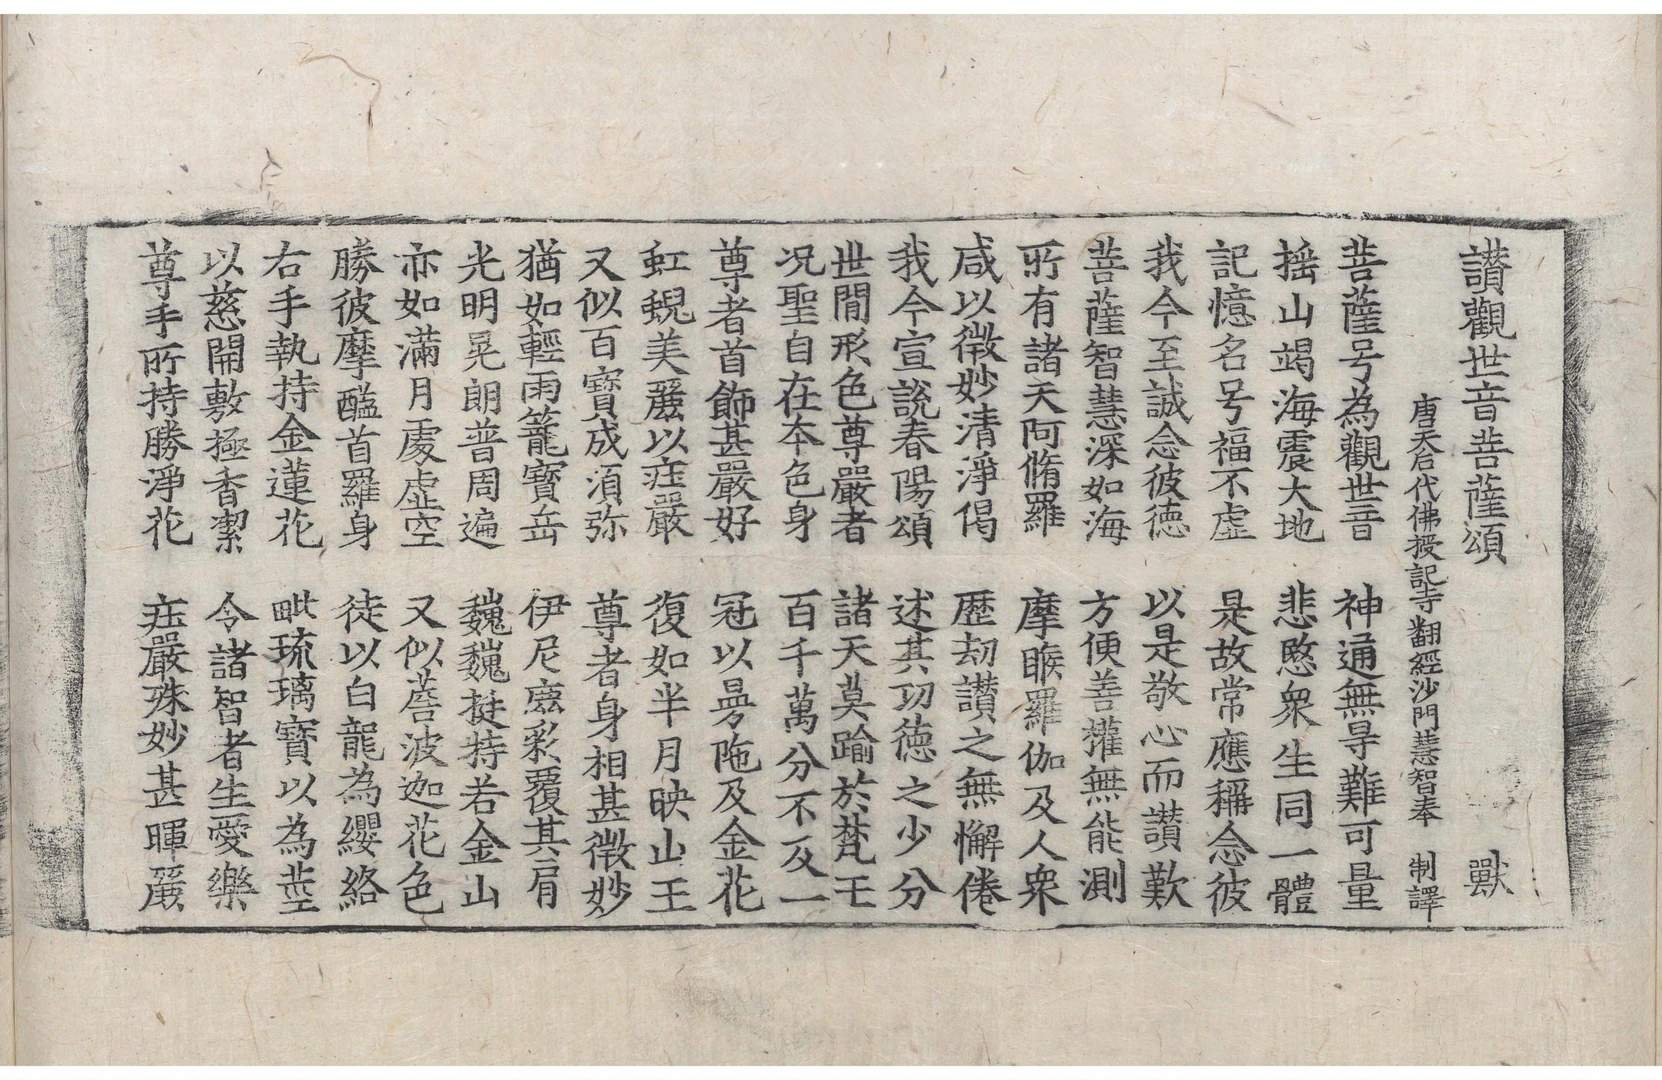 讃觀世音菩薩頌 獸
唐天后代佛授記寺翻經沙門慧智奉 制譯
菩薩号為觀世音 神通無㝵難可量
揺山竭海震大地 悲愍衆生同一體
記憶名号福不虛 是故常應稱念彼
我今至誠念彼徳 以是敬心而讃歎
菩薩智慧深如海 方便善權無能測
所有諸天阿脩羅 摩睺羅伽及人衆
咸以微妙清淨偈 歷劫讃之無懈倦
我今宣說春陽頌 述其功徳之少分
世間形色尊嚴者 諸天莫踰於梵王
况聖自在夲色身 百千萬分不及一
尊者首飾甚嚴好 冠以曼陁及金花
虹蜺美麗以莊嚴 復如半月映山王
又似百寶成須弥 尊者身相甚微妙
猶如輕雨籠寶岳 伊尼鹿彩覆其肩
光明晃朗普周遍 巍巍挺特若金山
亦如滿月處虛空 又似薝波迦花色
勝彼摩醯首羅身 徒以白龍為纓絡
右手執持金蓮花 毗琉璃寶以為莖
以慈開敷極香潔 令諸智者生愛樂
尊手所持勝淨花 莊嚴殊妙甚暉麗